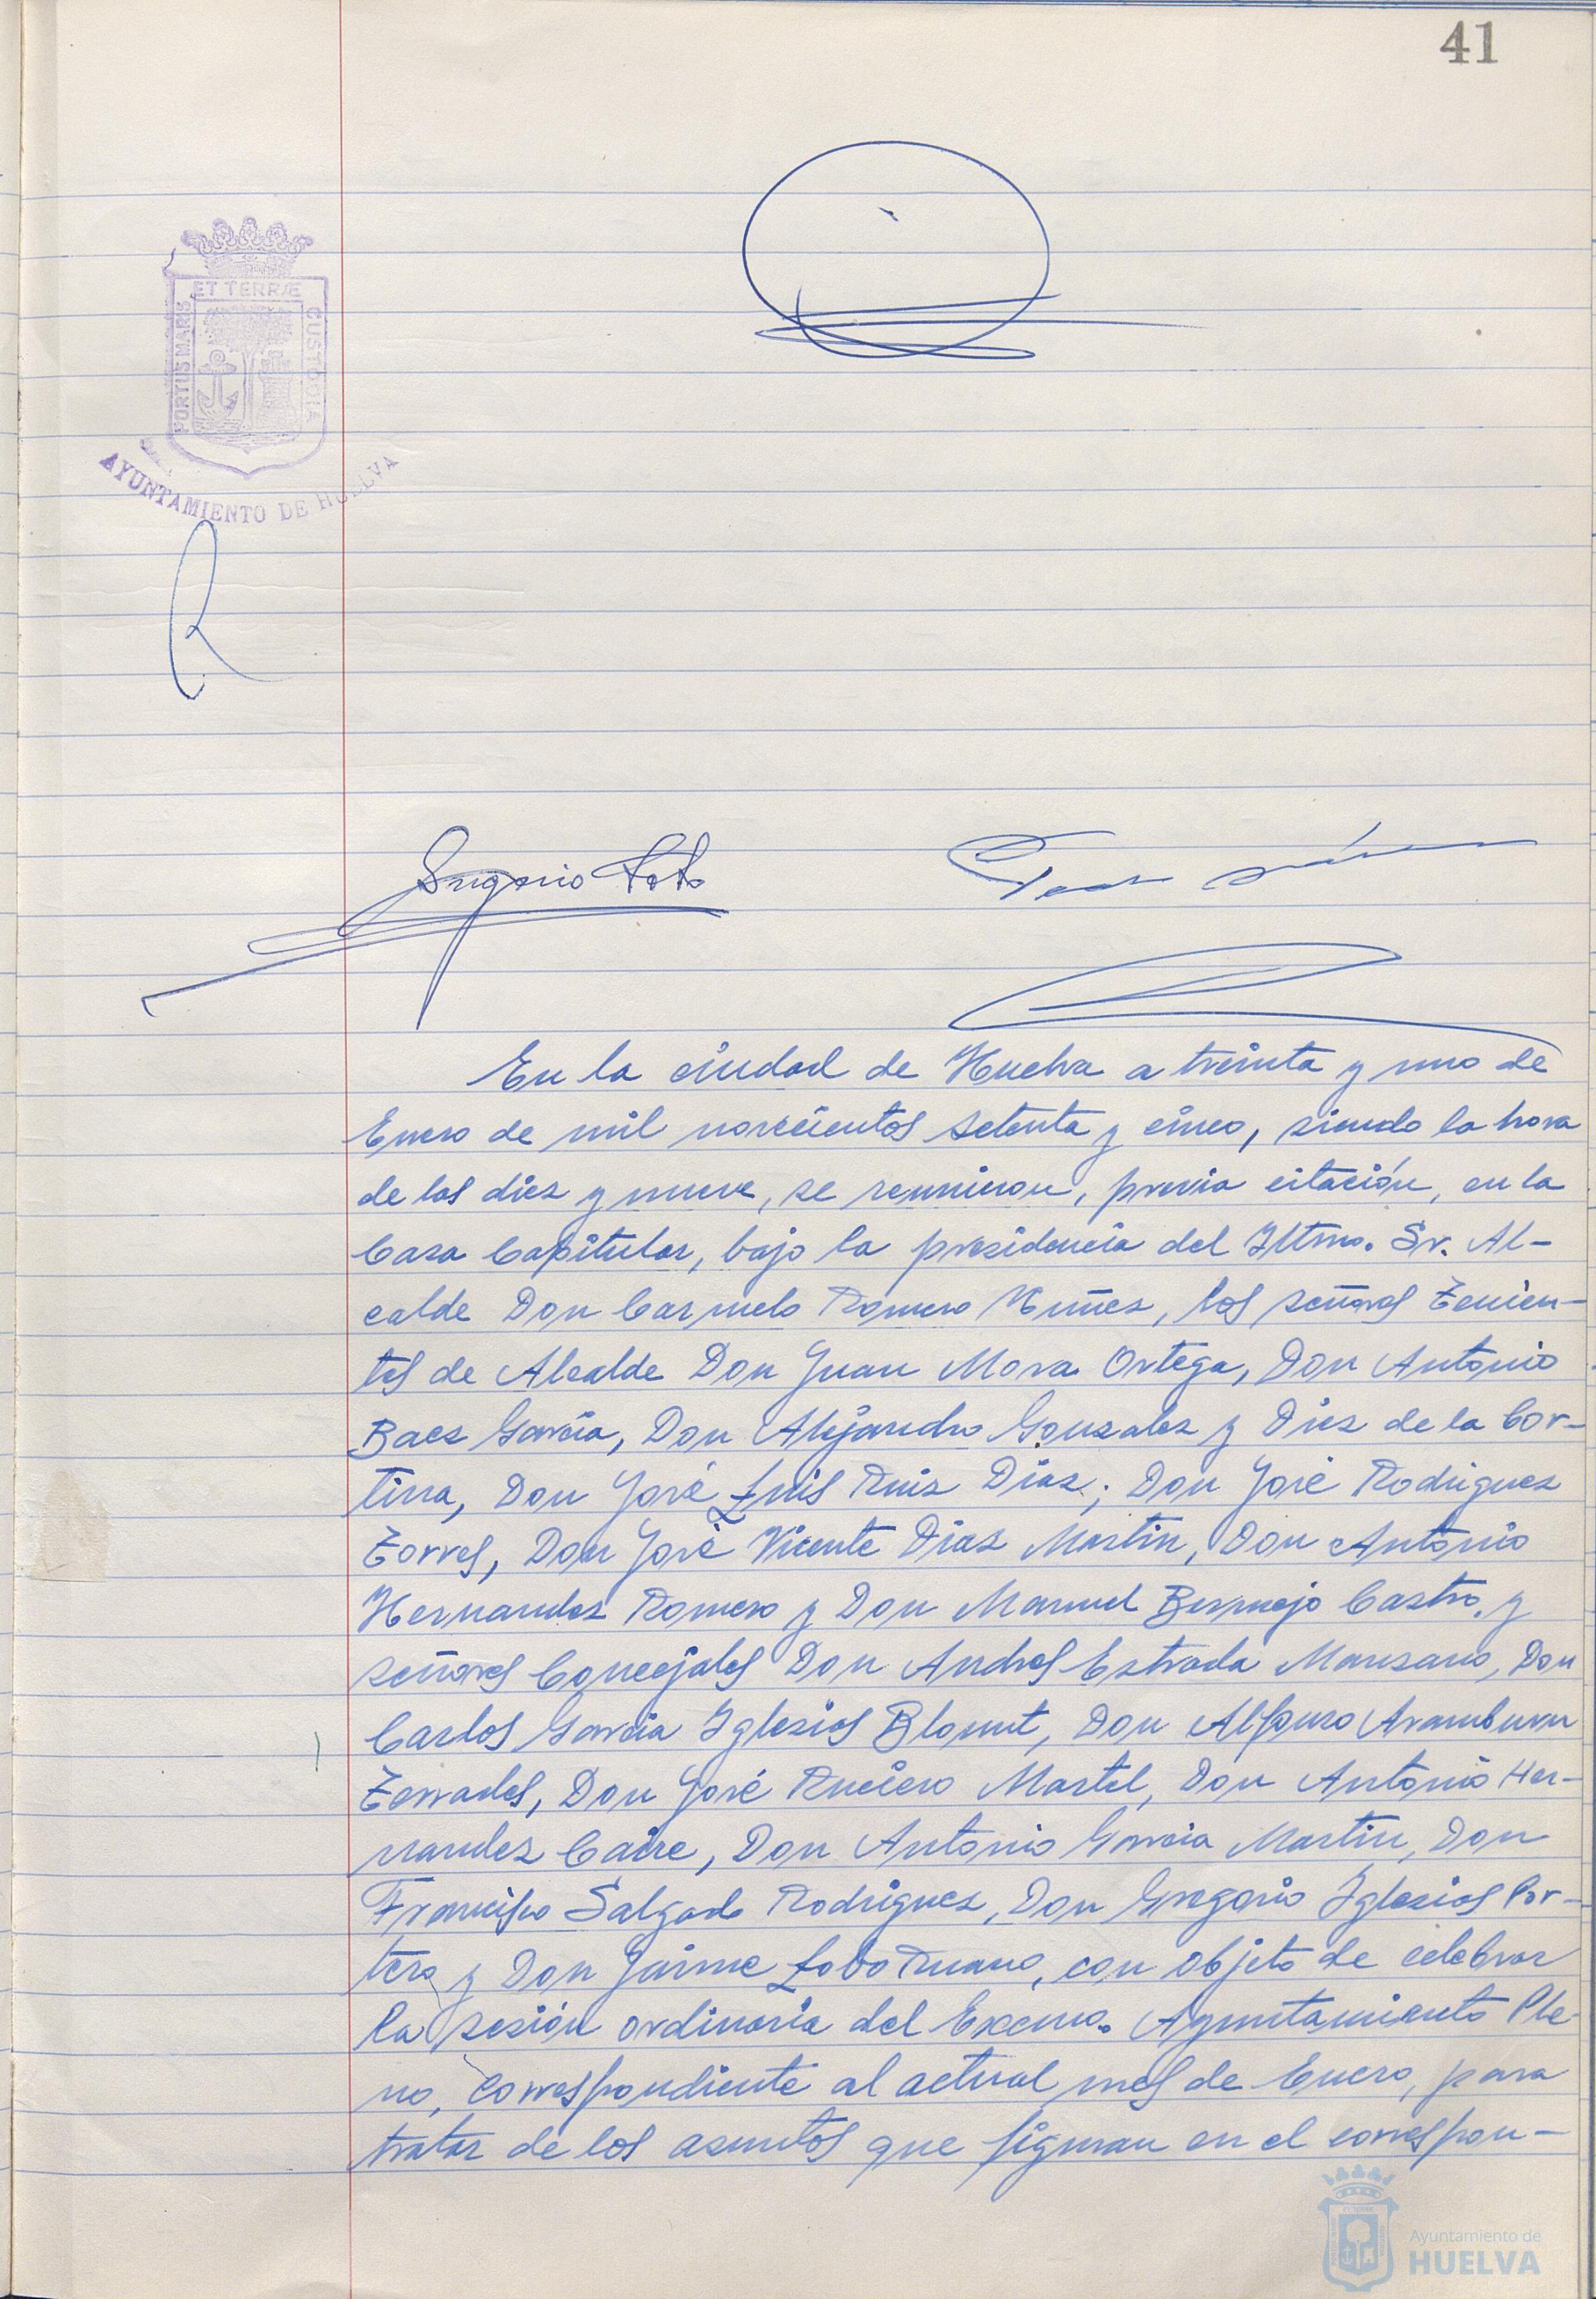 41
ET TERRÆ
PORTUS MARIS
CUSTODIA
AYUNTAMIENTO DE HUELVA
En la ciudad de Huelva a treinta y uno de
Enero de mil novecientos setenta y cinco, siendo la hora
de las diez y nueve, se reunieron, previa citación, en la
Casa Capitular, bajo la presidencia del Iltmo. Sr. Al-
calde Don Carmelo Romero Núñez, los señores Tenien-
tes de Alcalde Don Juan Mora Ortega, Don Antonio
Baez García, Don Alejandro Gonzalez y Diez de la Cor-
tina, Don José Luis Ruiz Díaz; Don José Rodriguez
Torres, Don José Vicente Diaz Martin, Don Antonio
Hernandez Romero y Don Manuel Bermejo Castro, y
señores Concejales Don Andres Estrada Manzano, Don
Carlos Garcia Iglesias Blount, Don Alfonso Aramburu
Terrades, Don José Ruciero Martel, Don Antonio Her-
nandez Caire, Don Antonio Garcia Martin, Don
Francisco Salgado Rodriguez, Don Gregorio Iglesias Por-
tero y Don Jaime Lobo Ruano, con objeto de celebrar
la sesión ordinaria del Excmo. Ayuntamiento Ple-
no, correspondiente al actual mes de Enero, para
tratar de los asuntos que figuran en el correspon-
Ayuntamiento de
HUELVA